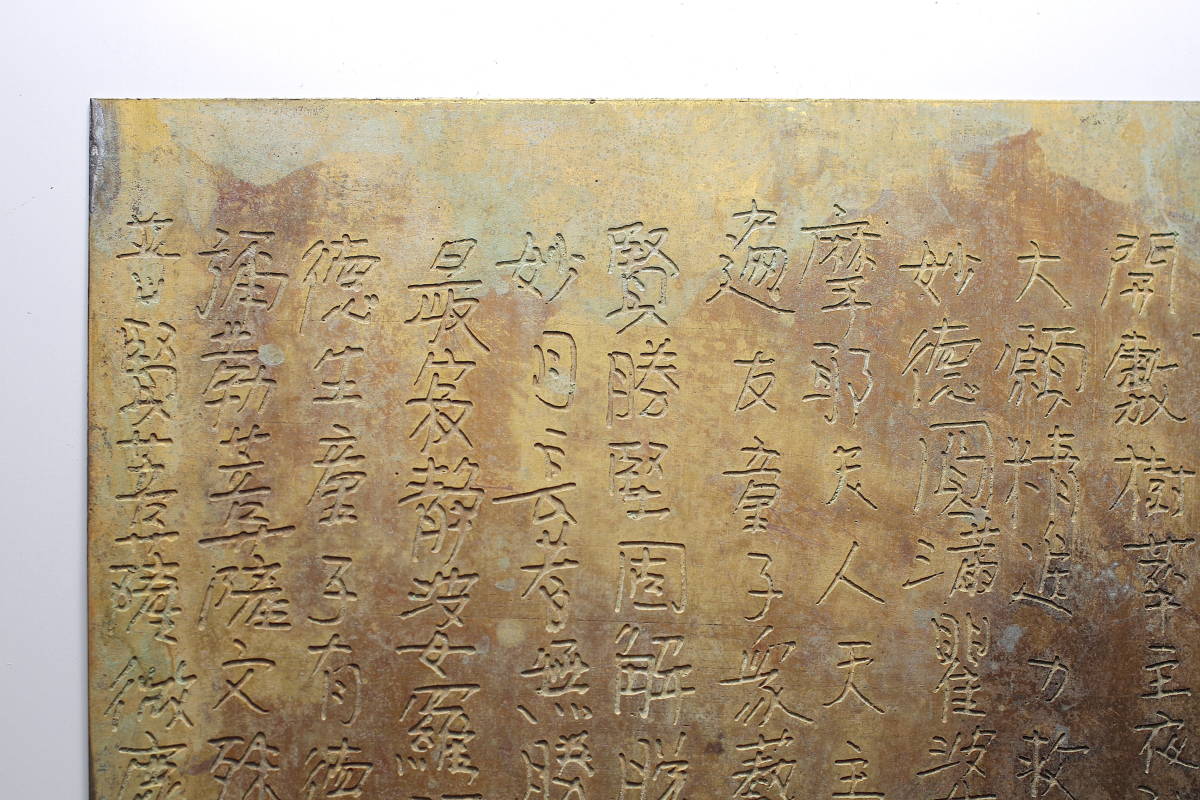 開敷樹華主夜
大願精進力救
妙德圓滿瞿婆
摩耶夫人天主
遍友童子衆藝
賢勝堅固解脫
妙月長者無勝
最寂靜婆羅
德生童子有德
彌勒菩薩文殊
普賢菩薩微塵